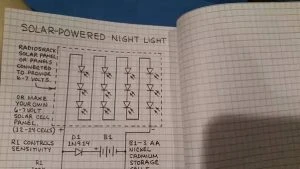 SOLAR-POWERED NIGHT LIGHT
RADIOSHACK
SOLAR PANEL
OR PANELS
CONNECTED
TO PROVIDE
6-7 VOLTS.
OR MAKE
YOUR OWN
6-7 VOLT
SOLAR CELL
PANEL
(12-14 CELLS)
+
R1 CONTROLS
SENSITIVITY
R1
D1
1N914
B1
+
-
B1-3 AA
NICKEL
CADMIUM
STORAGE
CELLS